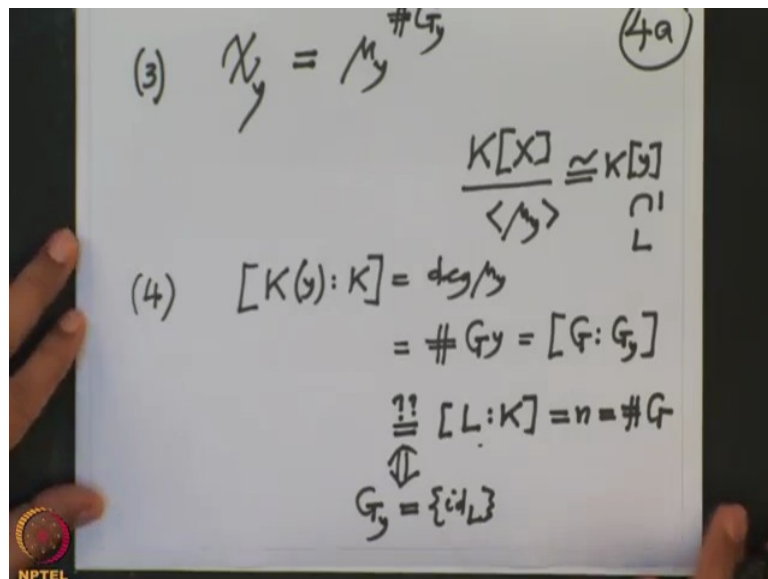 4a
(3) χ_y = μ_y^{#G_y}
K[X] / <μ_y> ≅ K[y]
∩|
L
(4) [K(y):K] = deg μ_y
= #Gy = [G:G_y]
?? = [L:K] = n = #G
⇕
G_y = {id_L}
NPTEL